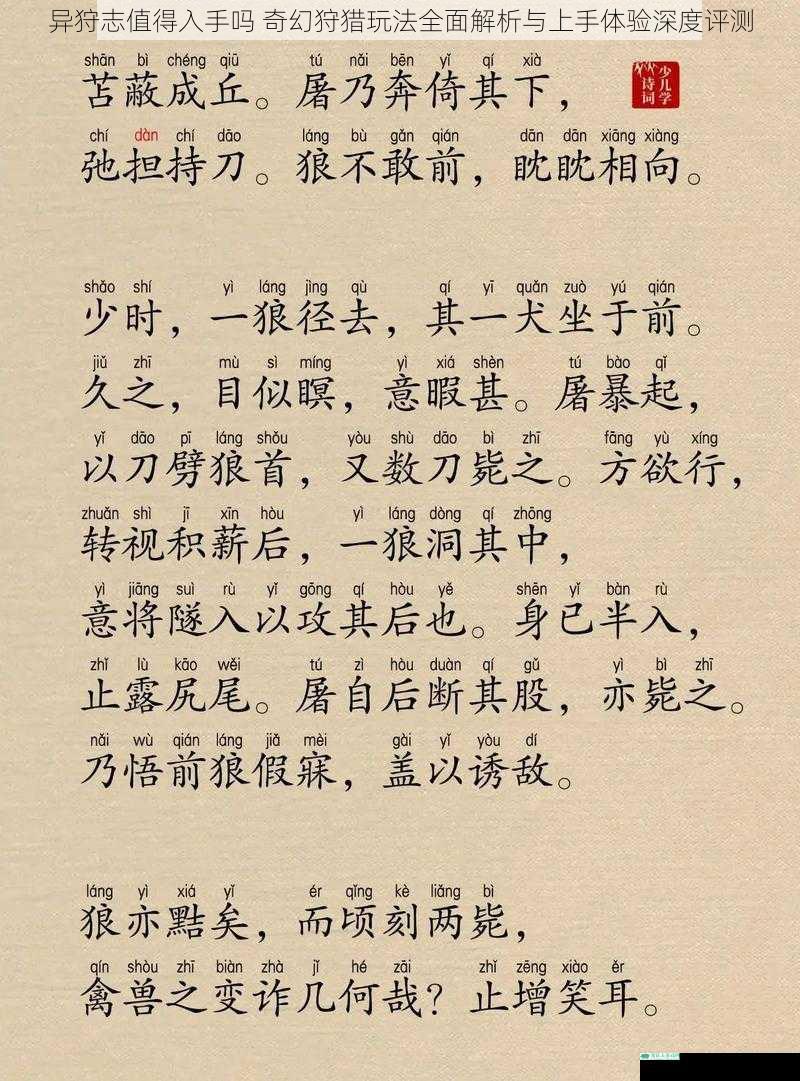 异狩志值得入手吗 奇幻狩猎玩法全面解析与上手体验深度评测
shān bì chéng qiū tú nǎi bēn yǐ qí xià
苫蔽成丘。屠乃奔倚其下，
少儿学
诗词
chí dàn chí dāo láng bù gǎn qián dān dān xiāng xiàng
弛担持刀。狼不敢前，眈眈相向。
shǎo shí yì láng jìng qù qí yī quǎn zuò yú qián
少时，一狼径去，其一犬坐于前。
jiǔ zhī mù sì míng yì xiá shèn tú bào qǐ
久之，目似瞑，意暇甚。屠暴起，
yǐ dāo pī láng shǒu yòu shù dāo bì zhī fāng yù xíng
以刀劈狼首，又数刀毙之。方欲行，
zhuǎn shì jī xīn hòu yì láng dòng qí zhōng
转视积薪后，一狼洞其中，
yì jiāng suì rù yǐ gōng qí hòu yě shēn yǐ bàn rù
意将隧入以攻其后也。身已半入，
zhǐ lù kāo wěi tú zì hòu duàn qí gǔ yì bì zhī
止露尻尾。屠自后断其股，亦毙之。
nǎi wù qián láng jiǎ mèi gài yǐ yòu dí
乃悟前狼假寐，盖以诱敌。
láng yì xiá yǐ ér qǐng kè liǎng bì
狼亦黠矣，而顷刻两毙，
qín shòu zhī biàn zhà jǐ hé zāi zhǐ zēng xiào ěr
禽兽之变诈几何哉？止增笑耳。